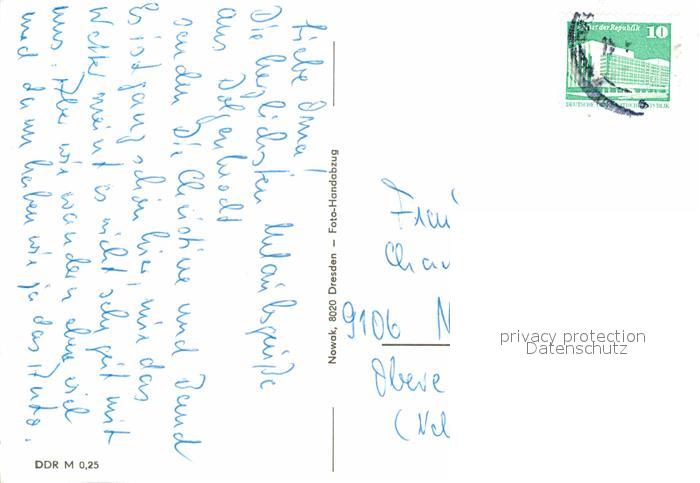 Liebe Oma!
Die herzlichsten Urlaubsgrüße
aus
senden Dir Christine und Bernd
Es ist ganz schön hier, nur das
Wetter meint es nicht sehr gut mit
uns. Aber wir wandern eben viel
und dann haben wir ja das Auto.
DDR M 0,25
Nowak, 8020 Dresden – Foto-Handabzug
der Republik 10
DEUTSCHE DEMOKRATISCHE REPUBLIK
Frau
9106 N
Obere
privacy protection
Datenschutz